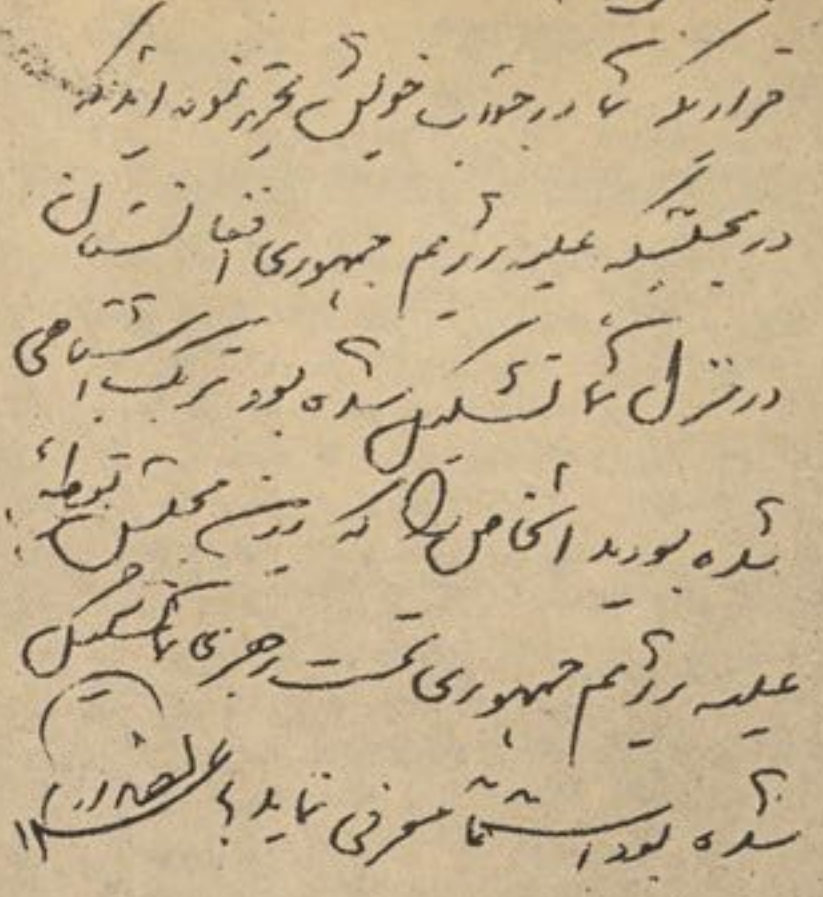 قراریکه شما در جواب خویش تحریر نموده اید که
در مجلسیکه علیه رژیم جمهوری افغانستان
در منزل شما تشکیل شده بود ترک اشتباهی
شده بودید اشخاص را که درین مجلس توطئه
علیه رژیم جمهوری تحت رهبری شما تشکیل
شده بود اسماً معرفی نماید؟